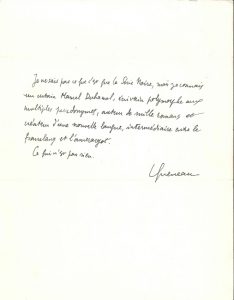 Je ne sais pas ce que c'est que la Série Noire, mais je connais
un certain Marcel Duhamel, écrivain polymorphe aux
multiples pseudonymes, auteur de mille romans et
créateur d'une nouvelle langue, intermédiaire entre le
franslang et l'amerargot.
Ce qui n'est pas rien.
Queneau